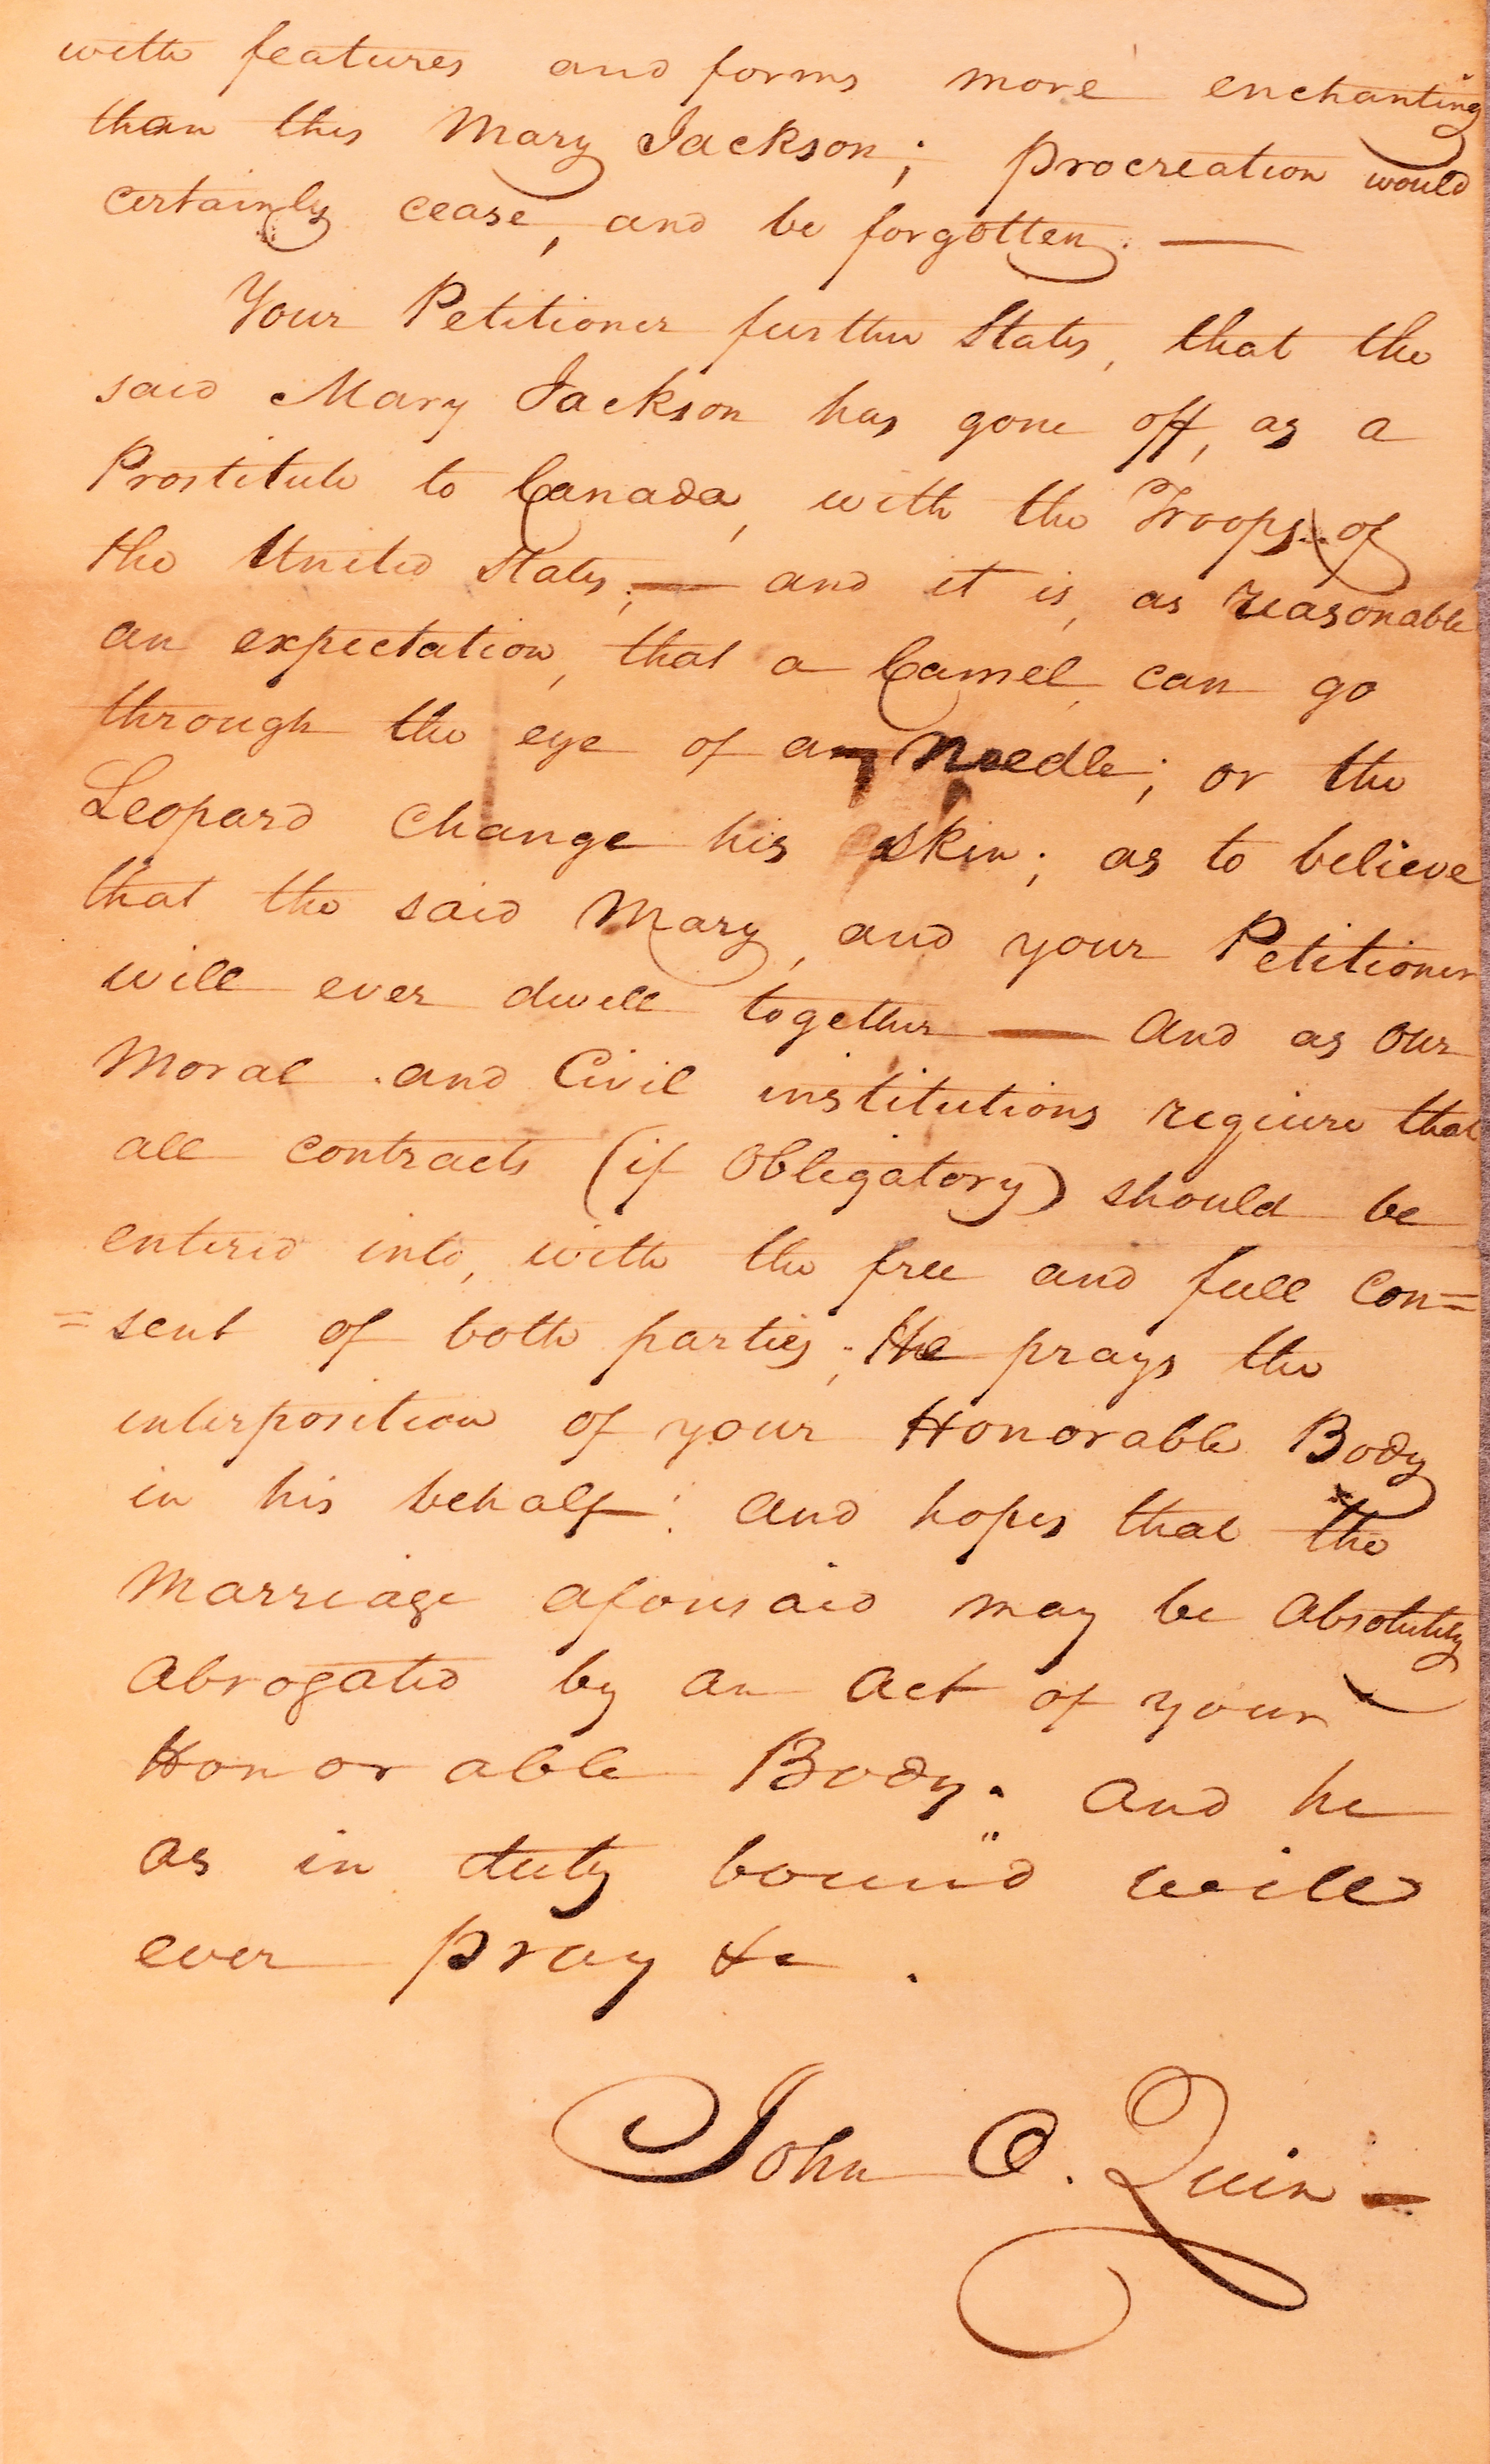 with features and forms more enchanting
than this Mary Jackson; procreation would
certainly cease, and be forgotten. —
Your Petitioner further States, that the
said Mary Jackson has gone off, as a
Prostitute to Canada, with the Troops of
the United States; — and it is, as reasonable
an expectation, that a Camel, can go
through the eye of a Needle; or the
Leopard Change his skin; as to believe
that the said Mary, and your Petitioner
will ever dwell together — And as our
Moral and Civil institutions require that
all contracts (if Obligatory) should be
entered into, with the free and full Con=
=sent of both parties; He prays the
interposition of your Honorable Body
in his behalf: And hopes that the
Marriage aforesaid may be Absolutely
Abrogated by an Act of your
Honorable Body. And he
as in duty bound will
ever pray &c.
John O. Quin —